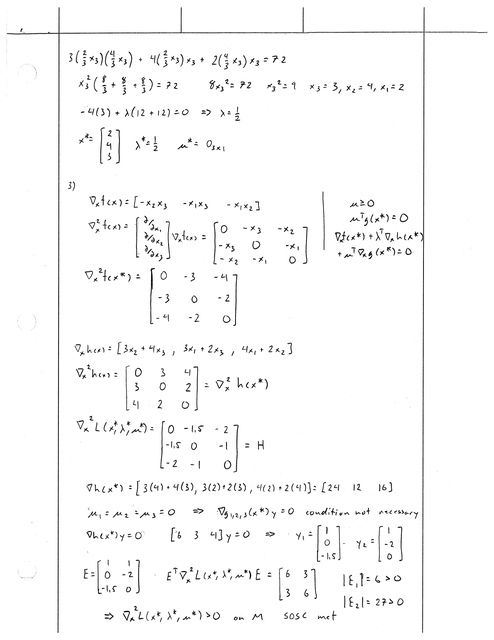 3(2/3 x₃)(4/3 x₃) + 4(2/3 x₃)x₃ + 2(4/3 x₃)x₃ = 72
x₃²(8/3 + 8/3 + 8/3) = 72 8x₃² = 72 x₃² = 9 x₃ = 3, x₂ = 4, x₁ = 2
-4(3) + λ(12+12) = 0 ⇒ λ = 1/2
x* = [2 4 3] λ* = 1/2 μ* = 0₃ₓ₁
3)
∇ₓf(x) = [-x₂x₃ -x₁x₃ -x₁x₂]
μ ≥ 0
μᵀg(x*) = 0
∇ₓf(x*) + λᵀ∇ₓh(x*)
+ μᵀ∇ₓg(x*) = 0
∇ₓ²f(x) = [∂/∂x₁ ∂/∂x₂ ∂/∂x₃] ∇ₓf(x) = [0 -x₃ -x₂
-x₃ 0 -x₁
-x₂ -x₁ 0]
∇ₓ²f(x*) = [0 -3 -4
-3 0 -2
-4 -2 0]
∇ₓh(x) = [3x₂ + 4x₃ , 3x₁ + 2x₃ , 4x₁ + 2x₂]
∇ₓ²h(x) = [0 3 4
3 0 2
4 2 0] = ∇ₓ²h(x*)
∇ₓ²L(x*, λ*, μ*) = [0 -1.5 -2
-1.5 0 -1
-2 -1 0] = H
∇h(x*) = [3(4) + 4(3), 3(2) + 2(3), 4(2) + 2(4)] = [24 12 16]
μ₁ = μ₂ = μ₃ = 0 ⇒ ∇g₁,₂,₃(x*)y = 0 condition not necessary
∇h(x*)y = 0 [6 3 4]y = 0 ⇒ y₁ = [1 0 -1.5] y₂ = [1 -2 0]
E = [1 1
0 -2
-1.5 0] Eᵀ∇ₓ²L(x*, λ*, μ*)E = [6 3
3 6] |E₁| = 6 > 0
|E₂| = 27 > 0
⇒ ∇ₓ²L(x*, λ*, μ*) > 0 on M SOSC met